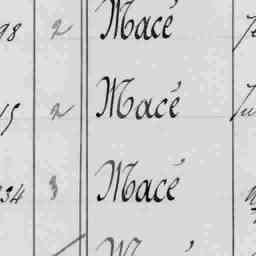 98 2 Macé
15 2 Macé
234 3 Macé